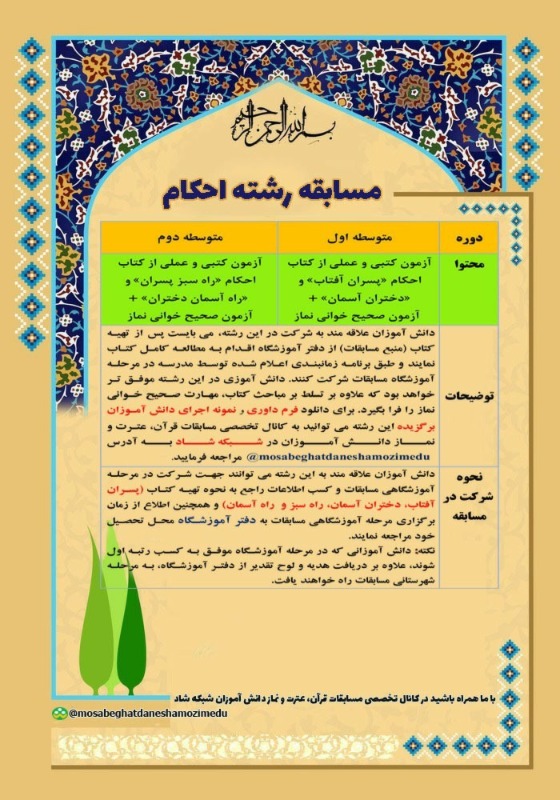 بسم الله الرحمن الرحیم
مسابقه رشته احکام
دوره
متوسطه اول
متوسطه دوم
محتوا
آزمون کتبی و عملی از کتاب
احکام «پسران آفتاب» و
«دختران آسمان» +
آزمون صحیح خوانی نماز
آزمون کتبی و عملی از کتاب
احکام «راه سبز پسران» و
«راه آسمان دختران» +
آزمون صحیح خوانی نماز
توضیحات
دانش آموزان علاقه مند به شرکت در این رشته، می بایست پس از تهیه
کتاب (منبع مسابقات) از دفتر آموزشگاه اقدام به مطالعه کامل کتاب
نمایند و طبق برنامه زمانبندی اعلام شده توسط مدرسه در مرحله
آموزشگاه مسابقات شرکت کنند. دانش آموزی در این رشته موفق تر
خواهد بود که علاوه بر تسلط بر مباحث کتاب، مهارت صحیح خوانی
نماز را فرا بگیرد. برای دانلود فرم داوری و نمونه اجرای دانش آموزان
برگزیده این رشته می توانید به کانال تخصصی مسابقات قرآن، عترت و
نماز دانش آموزان در شبکه شاد به آدرس
@mosabeghatdaneshamozimedu مراجعه فرمایید.
نحوه
شرکت در
مسابقه
دانش آموزان علاقه مند به این رشته می توانند جهت شرکت در مرحله
آموزشگاهی مسابقات و کسب اطلاعات راجع به نحوه تهیه کتاب (پسران
آفتاب، دختران آسمان، راه سبز و راه آسمان) و همچنین اطلاع از زمان
برگزاری مرحله آموزشگاهی مسابقات به دفتر آموزشگاه محل تحصیل
خود مراجعه نمایند.
نکته: دانش آموزانی که در مرحله آموزشگاه موفق به کسب رتبه اول
شوند، علاوه بر دریافت هدیه و لوح تقدیر از دفتر آموزشگاه، به مرحله
شهرستانی مسابقات راه خواهند یافت.
با ما همراه باشید در کانال تخصصی مسابقات قرآن، عترت و نماز دانش آموزان شبکه شاد
@mosabeghatdaneshamozimedu